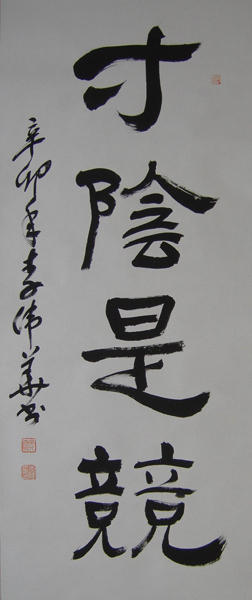 寸陰是競
辛卯年李伟華书